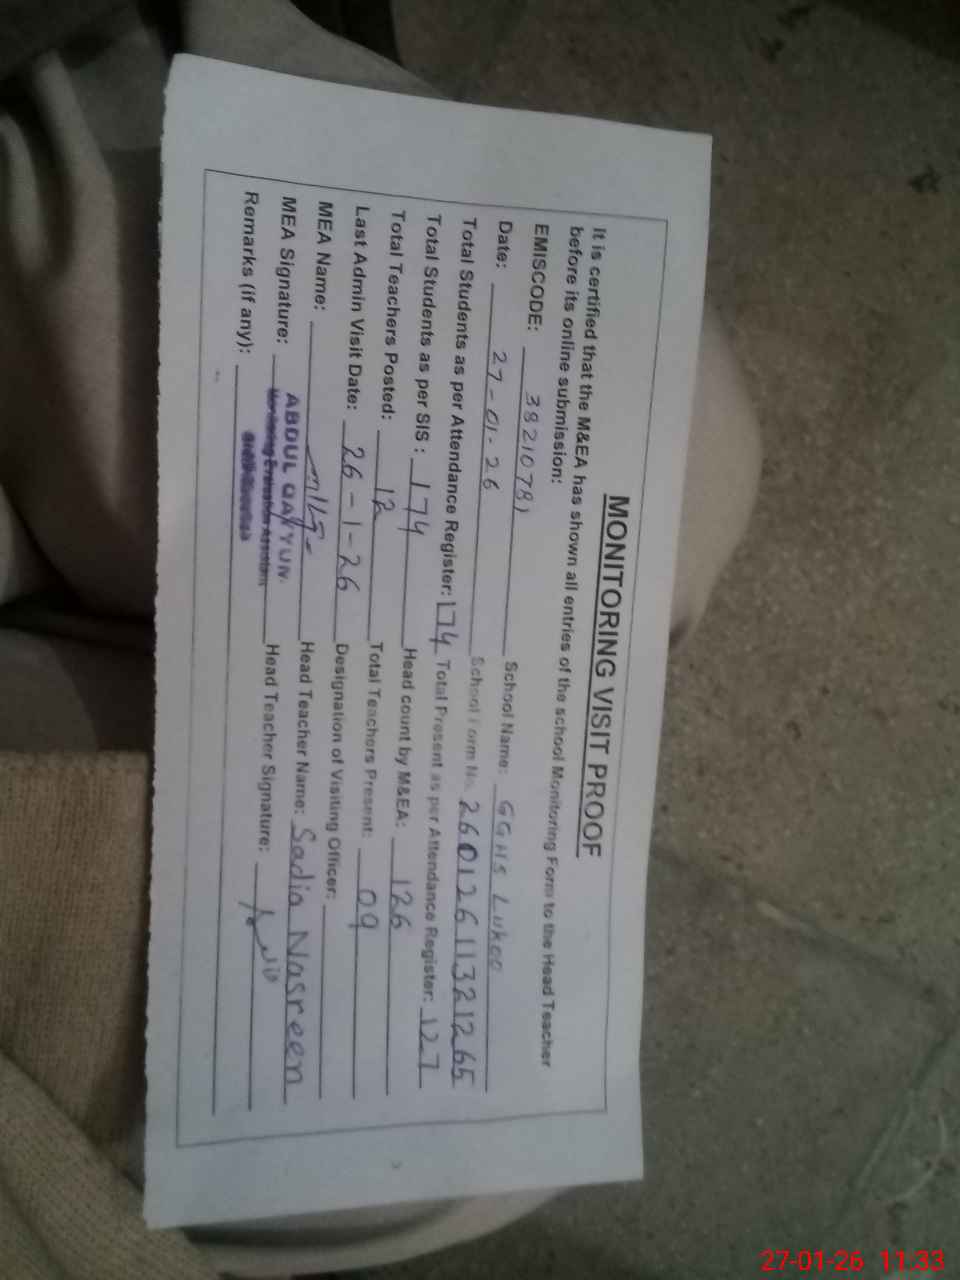 MONITORING VISIT PROOF
It is certified that the M&EA has shown all entries of the school Monitoring Form to the Head Teacher
before its online submission:
EMISCODE: 38210781 School Name: GGHS Lukoo
Date: 27-01-26 School Form No. 2601261132 1265
Total Students as per Attendance Register: 174 Total Present as per Attendance Register: 127
Total Students as per SIS : 174 Head count by M&EA: 126
Total Teachers Posted: 12 Total Teachers Present: 09
Last Admin Visit Date: 26-1-26 Designation of Visiting Officer:
MEA Name: Head Teacher Name: Sadia Nasreen
MEA Signature: ABDUL QAYYUM Head Teacher Signature:
Monitoring Evaluation Assistant
Remarks (if any):
27-01-26 11:33